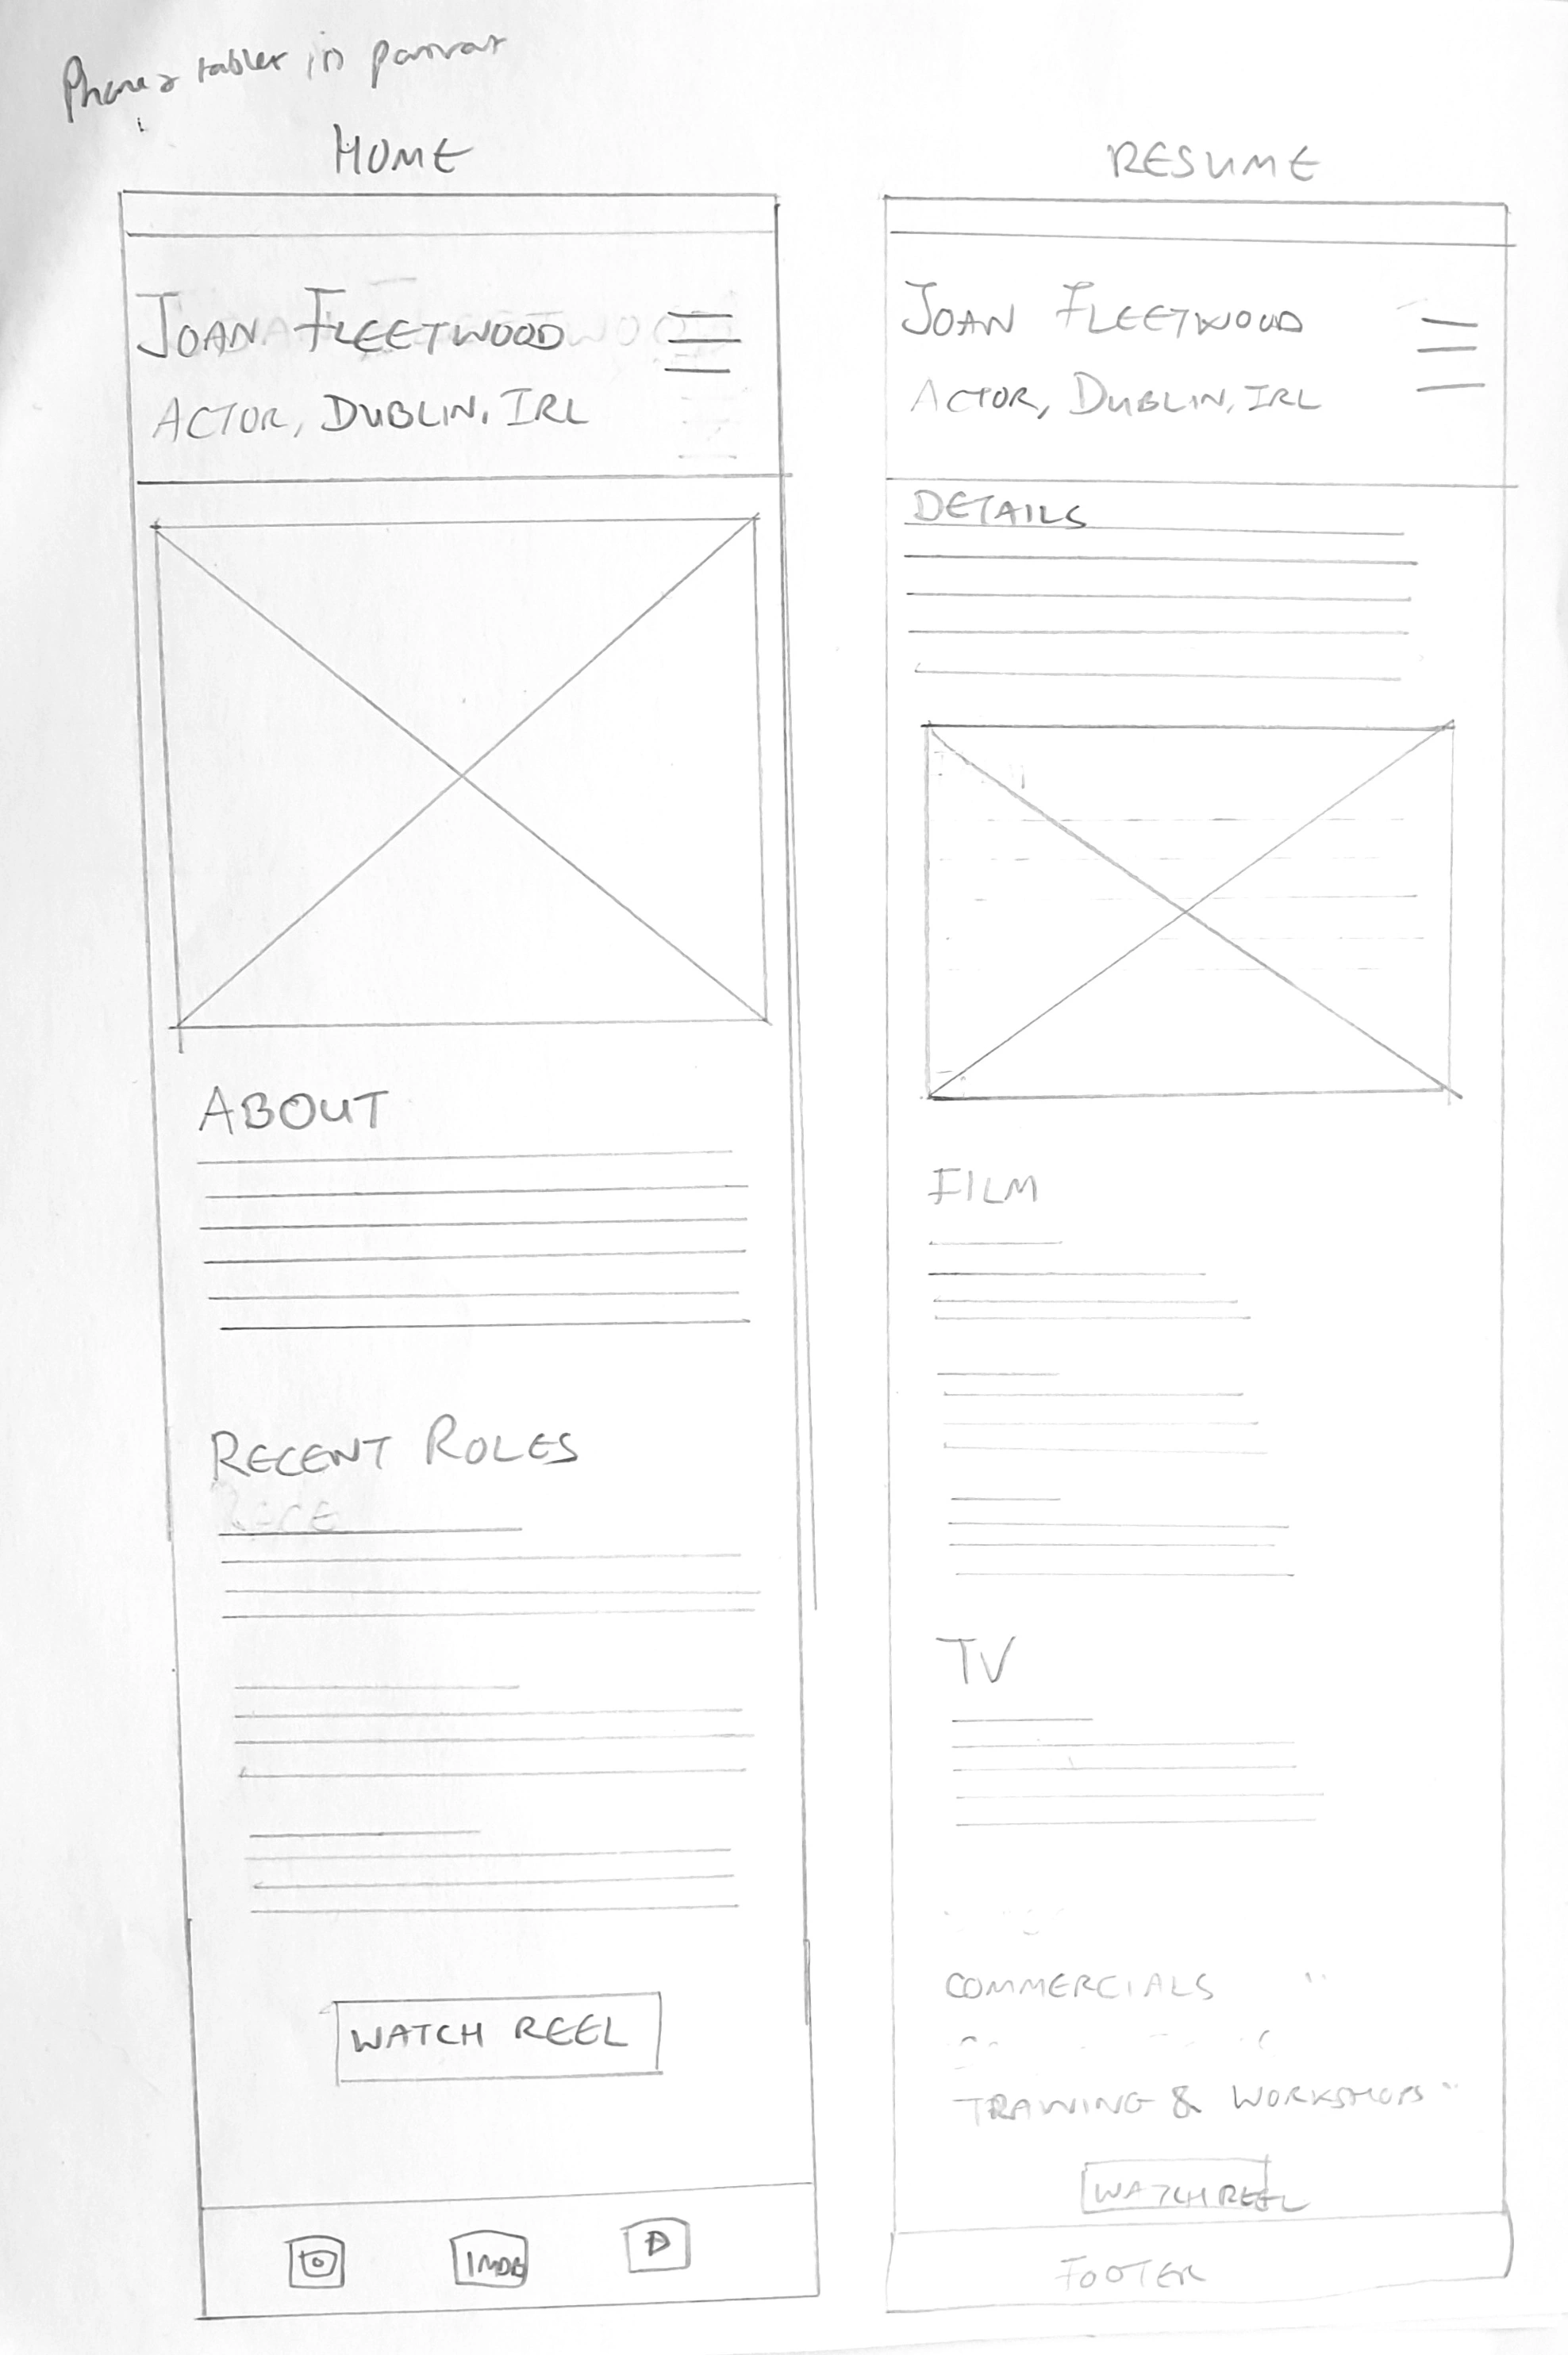 Phone & tablet in portrait
HOME
JOAN FLEETWOOD
ACTOR, DUBLIN, IRL
ABOUT
RECENT ROLES
WATCH REEL
IMDB
RESUME
JOAN FLEETWOOD
ACTOR, DUBLIN, IRL
DETAILS
FILM
TV
COMMERCIALS "
TRAINING & WORKSHOPS "
WATCH REEL
FOOTER